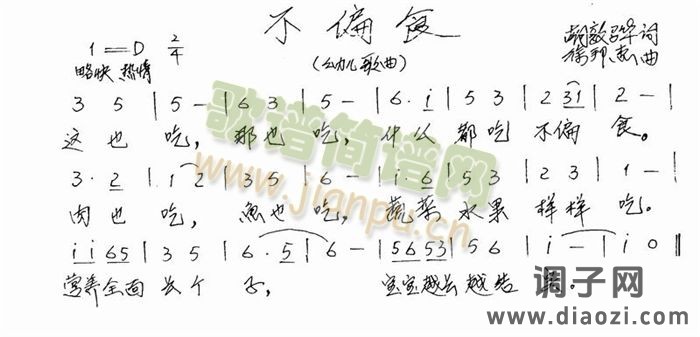 不偏食
1=D 2/4
(幼儿歌曲)
胡敦骅词
徐邦杰曲
略快 热情
3 5 | 5 - | 6 3 | 5 - | 6. i | 5 3 | 2 31 | 2 - |
这也吃，那也吃，什么都吃不偏食。
3. 2 | 1 2 | 3 5 | 6 - | i. 6 | 5 3 | 2 3 | 1 - |
肉也吃，鱼也吃，蔬菜水果样样吃。
i i 65 | 3 5 | 6. 5 | 6 - | 56 53 | 5 6 | i - | i 0 ‖
营养全面长个子，宝宝越长越结
歌谱简谱网
www.jianpu.cn
调子网
www.diaozi.com